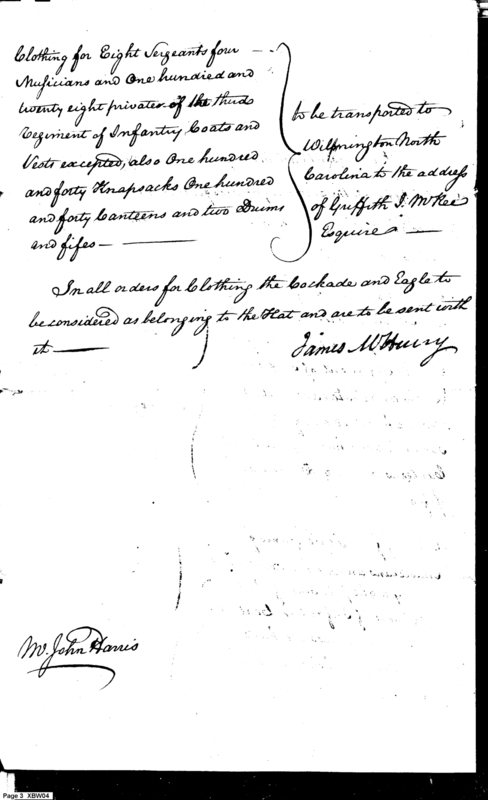 Clothing for Eight Sergeants four
Musicians and One hundred and
twenty eight privates of the third
Regiment of Infantry Coats and
Vests excepted, also One hundred
and forty Knapsacks One hundred
and forty Canteens and two Drums
and fifes —
to be transported to
Wilmington North
Carolina to the address
of Griffeth J. McRee
Esquire —
In all orders for Clothing the Cockade and Eagle to
be considered as belonging to the Hat and are to be sent with
it —
James McHenry
Mr. John Harris
Page 3 XBW04